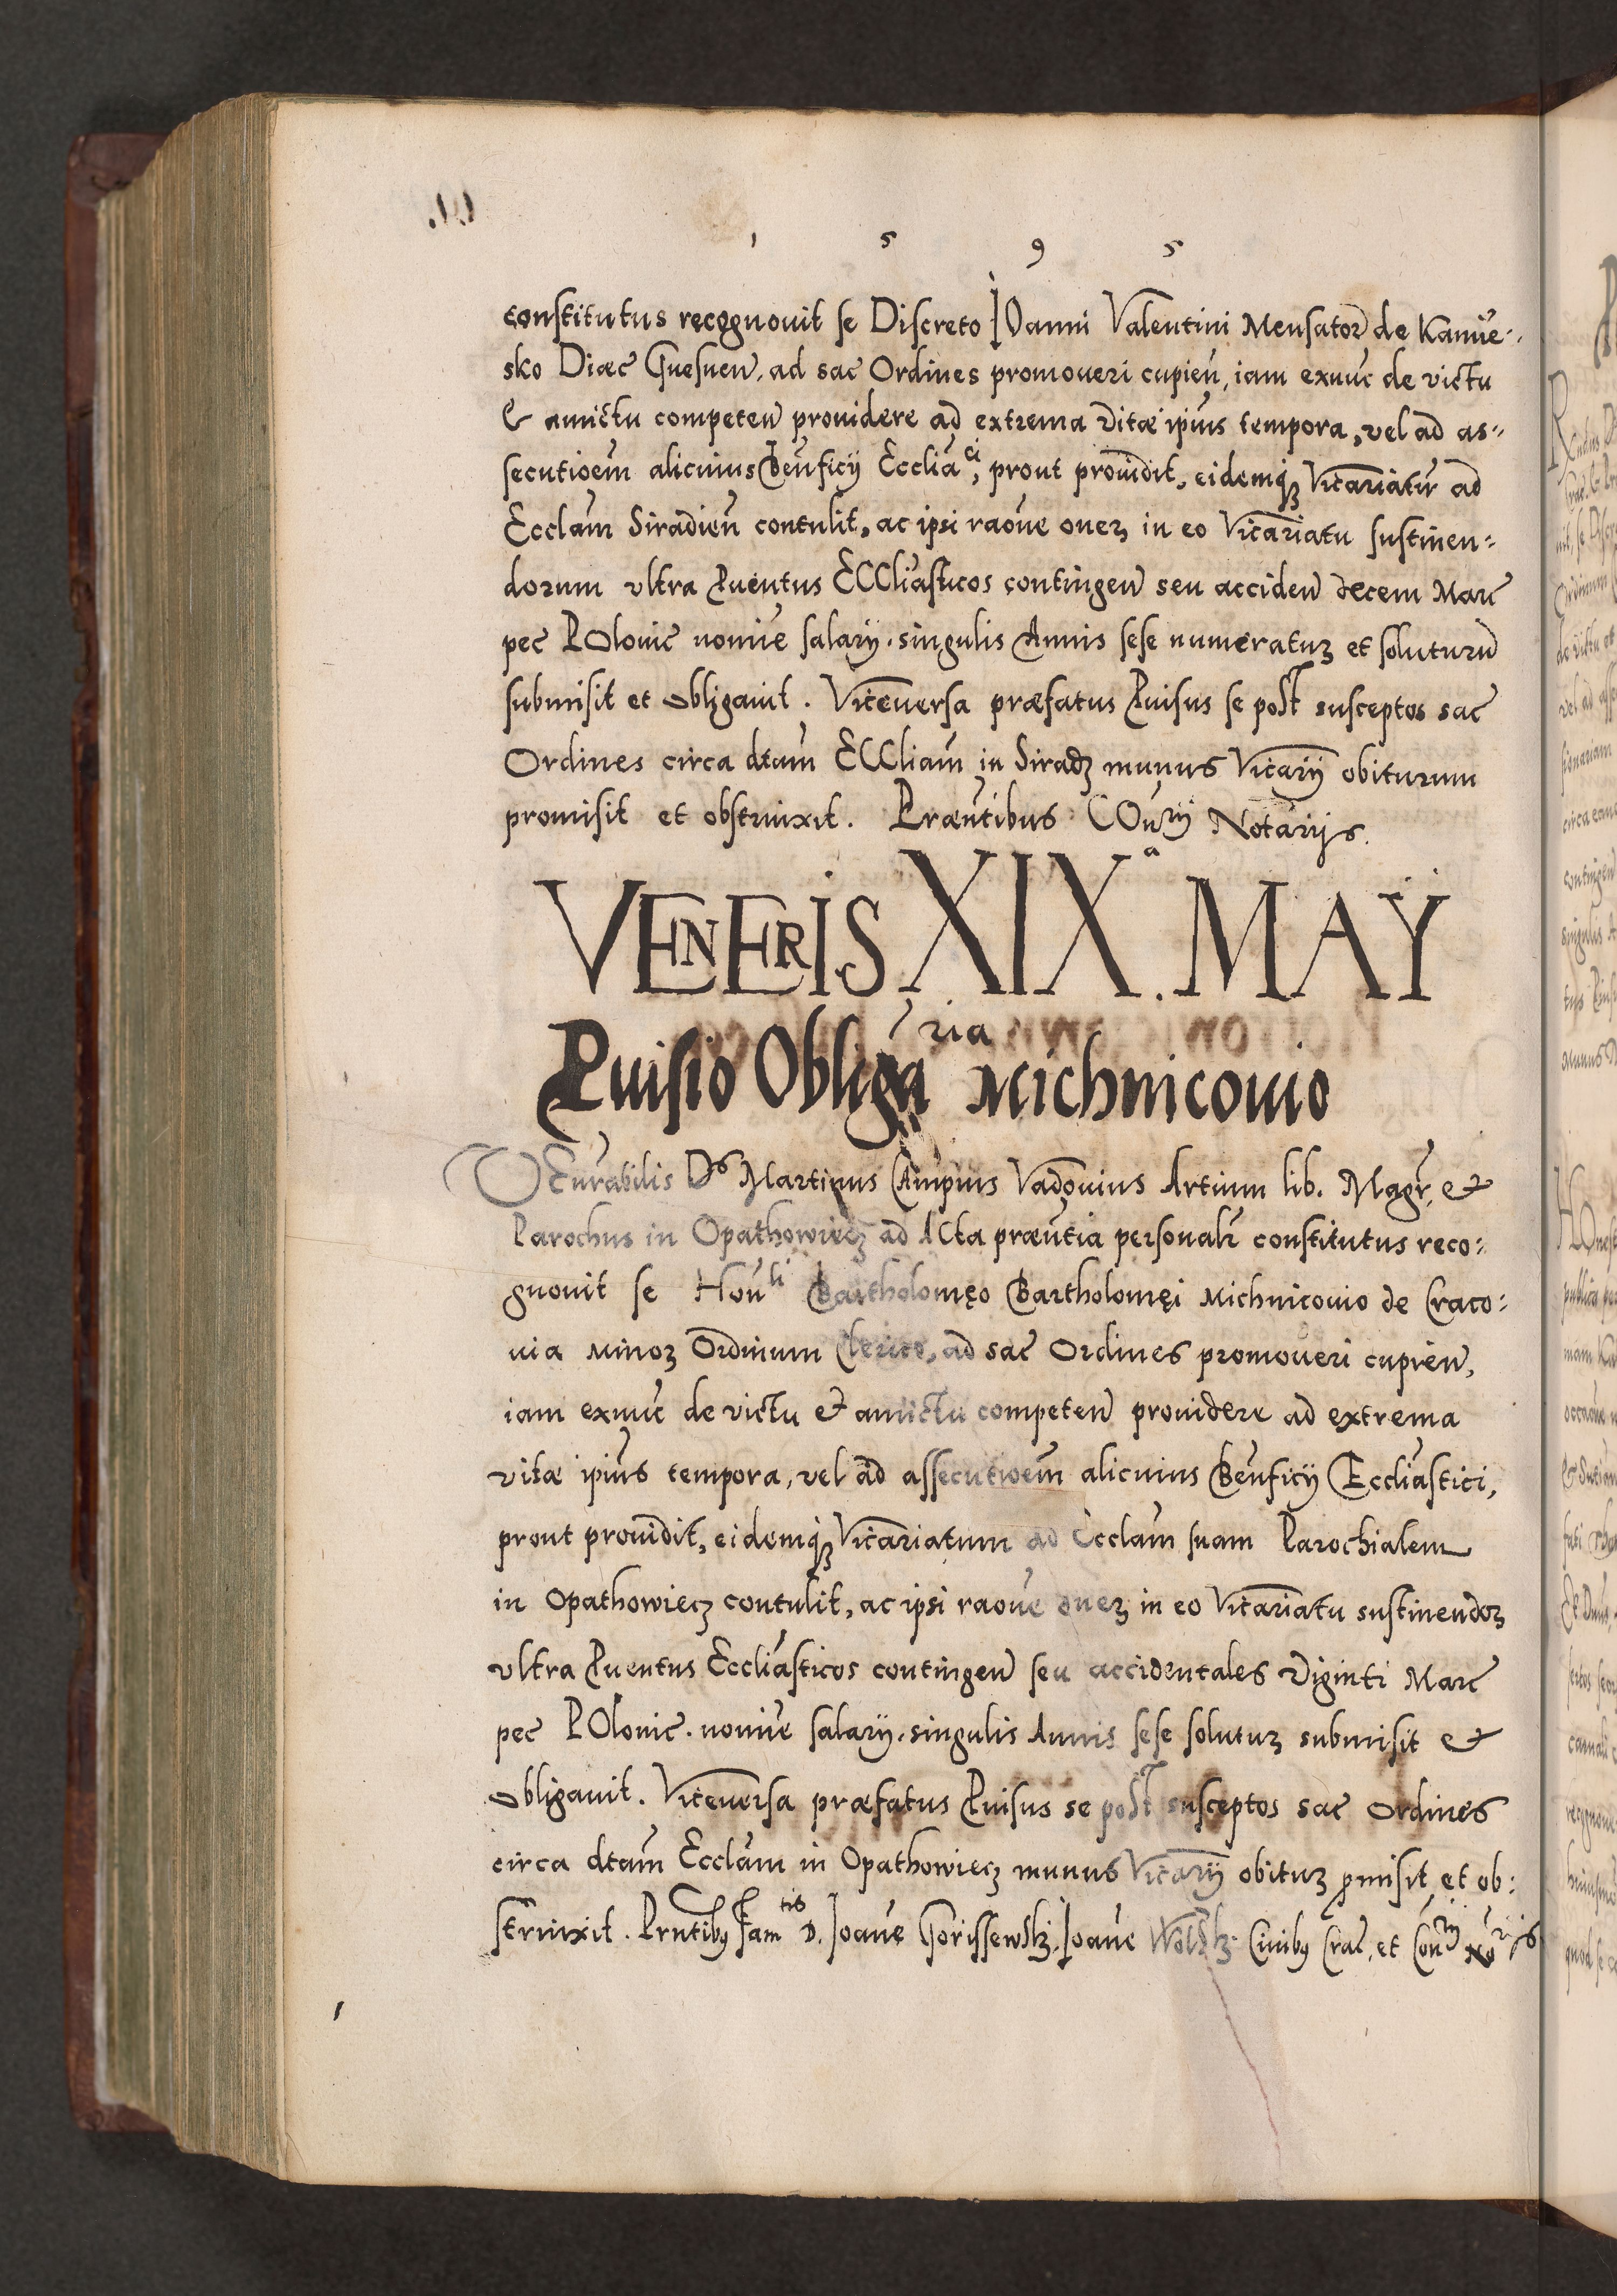 1 5 9 5
constitutus recognouit se Discreto IOanni Valentini Mensator de Kamie-
sko Diœc Gnesnen, ad sac Ordines promoueri cupien, iam exnunc de victu
& amictu competen prouidere ad extrema vitæ ipius tempora, vel ad as-
secutioem alicuius Benficij Eccliaci, prout prouidit, eidemq3 Vicariatu ad
Ecclam Siradien contulit, ac ipsi raone oner3 in eo Vicariatu sustinen-
dorum vltra Puentus ECCliasticos contingen seu acciden decem Marc
pec POlonic nomie salarij singulis Annis sese numeratur3 et soluturu
submisit et obligauit. Viceuersa præfatus Puisus se post susceptos sac
Ordines circa dtam ECCliam in Sirad3 munus Vicarij obiturum
promisit et obstrinxit. Præntibus COnrij Notarijs.
VENERIS XIXa. MAŸ
Puisio Obligaria Michnicouio
VEnrabilis Ds Martinus Campius Vadouius Artium lib. Magr, &
Parochus in Opathowiec3 ad ACta præntia personalr constitutus reco-
gnouit se Honli Bartholomęo Bartholomęi Michnicouio de Craco-
uia Minor3 Ordinum Clerico, ad sac Ordines promoueri cupien,
iam exnunc de victu & amictu competen prouidere ad extrema
vitæ ipius tempora, vel ad assecutioem alicuius Benficij Eccliastici,
prout prouidit, eidemq3 Vicariatum ad Ecclam suam Parochialem
in Opathowiec3 contulit, ac ipsi raone oner3 in eo Vicariatu sustinendor3
vltra Puentus Eccliasticos contingen seu accidentales viginti Marc
pec POlonic nomie salarij singulis Annis sese solutur3 submisit &
obligauit. Viceuersa præfatus Puisus se post susceptos sac Ordines
circa dtam Ecclam in Opathowiec3 munus Vicarij obitur3 pmisit et ob-
strinxit. Prntibus Famtis D. Ioane Ioane Ciuibus Crac, et Conrij